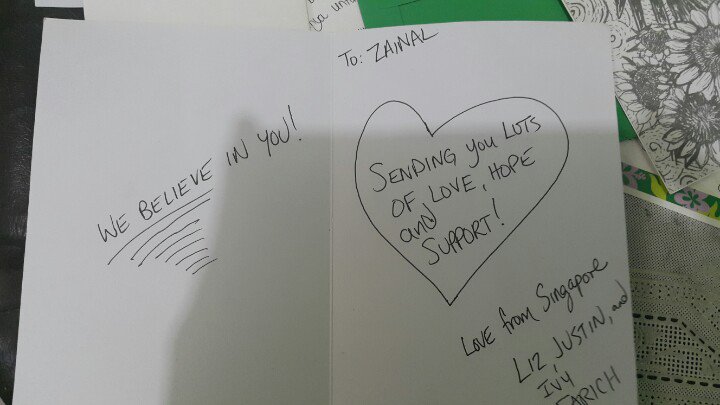 WE BELIEVE IN YOU!
To: ZAINAL
SENDING you LOTS
OF LOVE, HOPE
and
SUPPORT!
LOVE from Singapore
LIZ, JUSTIN, and
IVY